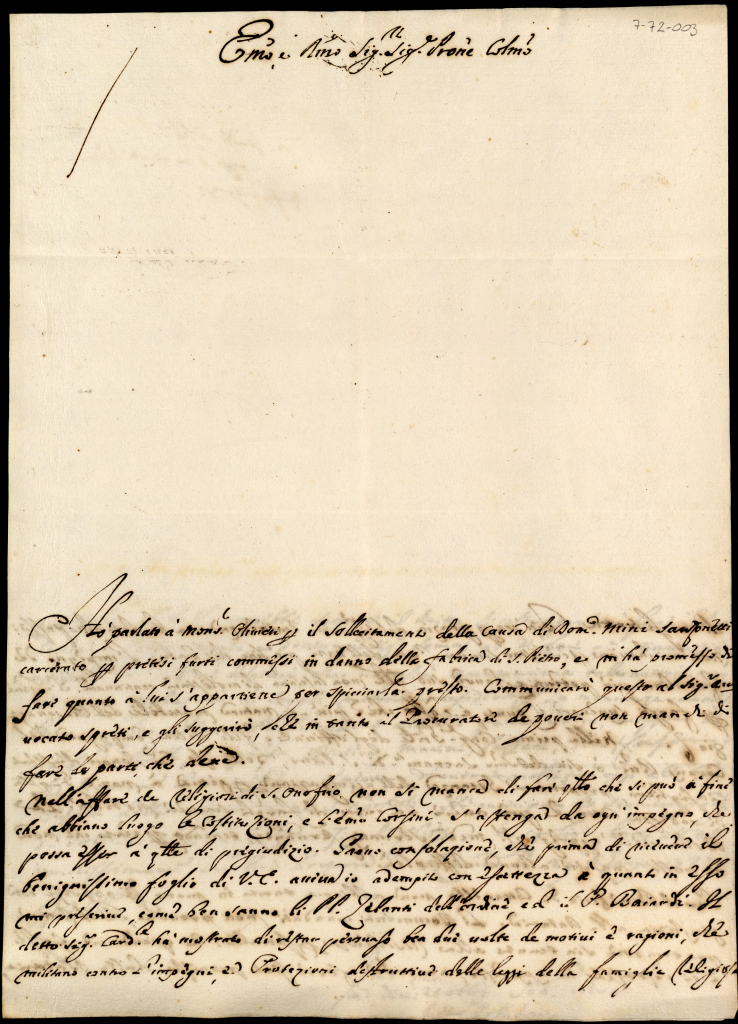 7-72-003
Em̃o, e Rm̃o Sig.r Sig.r Pron̄e Colm̃o
Hò parlato à Mons.r Olivieri p il sollecitamento della Causa di Dom.co Mini
carcerato p pretesi furti commessi in danno della fabrica di S. Pietro, e m'hà promesso di
fare quanto à lui s'appartiene per spicciarla presto. Communicarò questo al Sig.r Au
vocato Spreti, e gli suggerirò, che in tanto il Procuratore de poveri non manchi di
fare le parti, che deve.
Nell'affare de Religiosi di S. Onofrio non si manca di fare q̃llo che si può à fine
che abbiano luogo le Costituzioni, e l'Em̃o Corsini s'astenga da ogni impegno, che
possa esser à q̃lle di pregiudizio. Provo consolazione, che prima di ricevere il
benignissimo foglio di V.E. aveva io adempito con esattezza à quanto in esso
mi prescrive, come ben sanno li PP. Zelanti dell'ordine, ed il P. Baiardi. Il
detto Sig.r Card.le hà mostrato di restar persuaso ben due volte de motivi e ragioni, che
militano contro l'impegni, e Protezioni destruttive delle leggi della famiglie Religiose